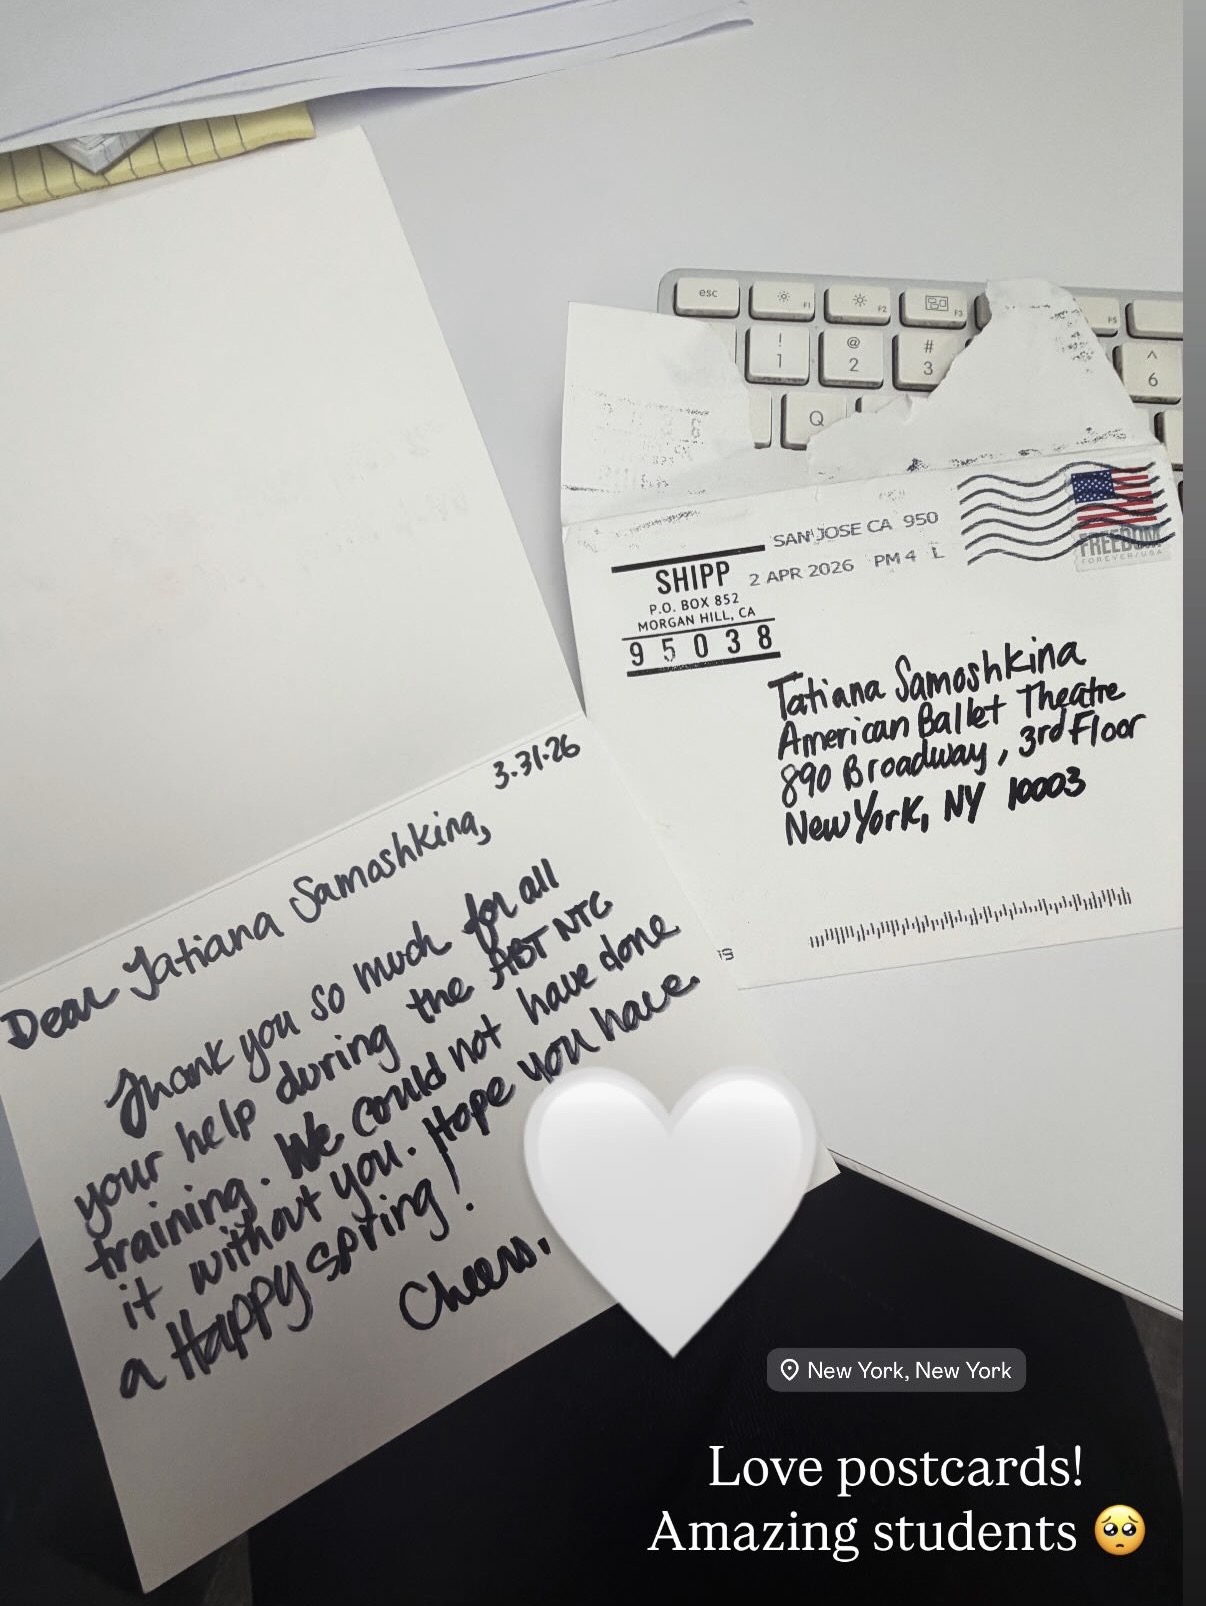 esc
F1
F2
F3
F5
!
1
@
2
#
3
^
6
Q
SAN JOSE CA 950
2 APR 2026 PM 4 L
FREEDOM
FOREVER/USA
SHIPP
P.O. BOX 852
MORGAN HILL, CA
95038
Tatiana Samoshkina
American Ballet Theatre
890 Broadway, 3rd Floor
New York, NY 10003
3.31.26
Dear Tatiana Samoshkina,
Thank you so much for all
your help during the ABT NTC
training. We could not have done
it without you. Hope you have
a Happy spring!
Cheers,
New York, New York
Love postcards!
Amazing students 🥺